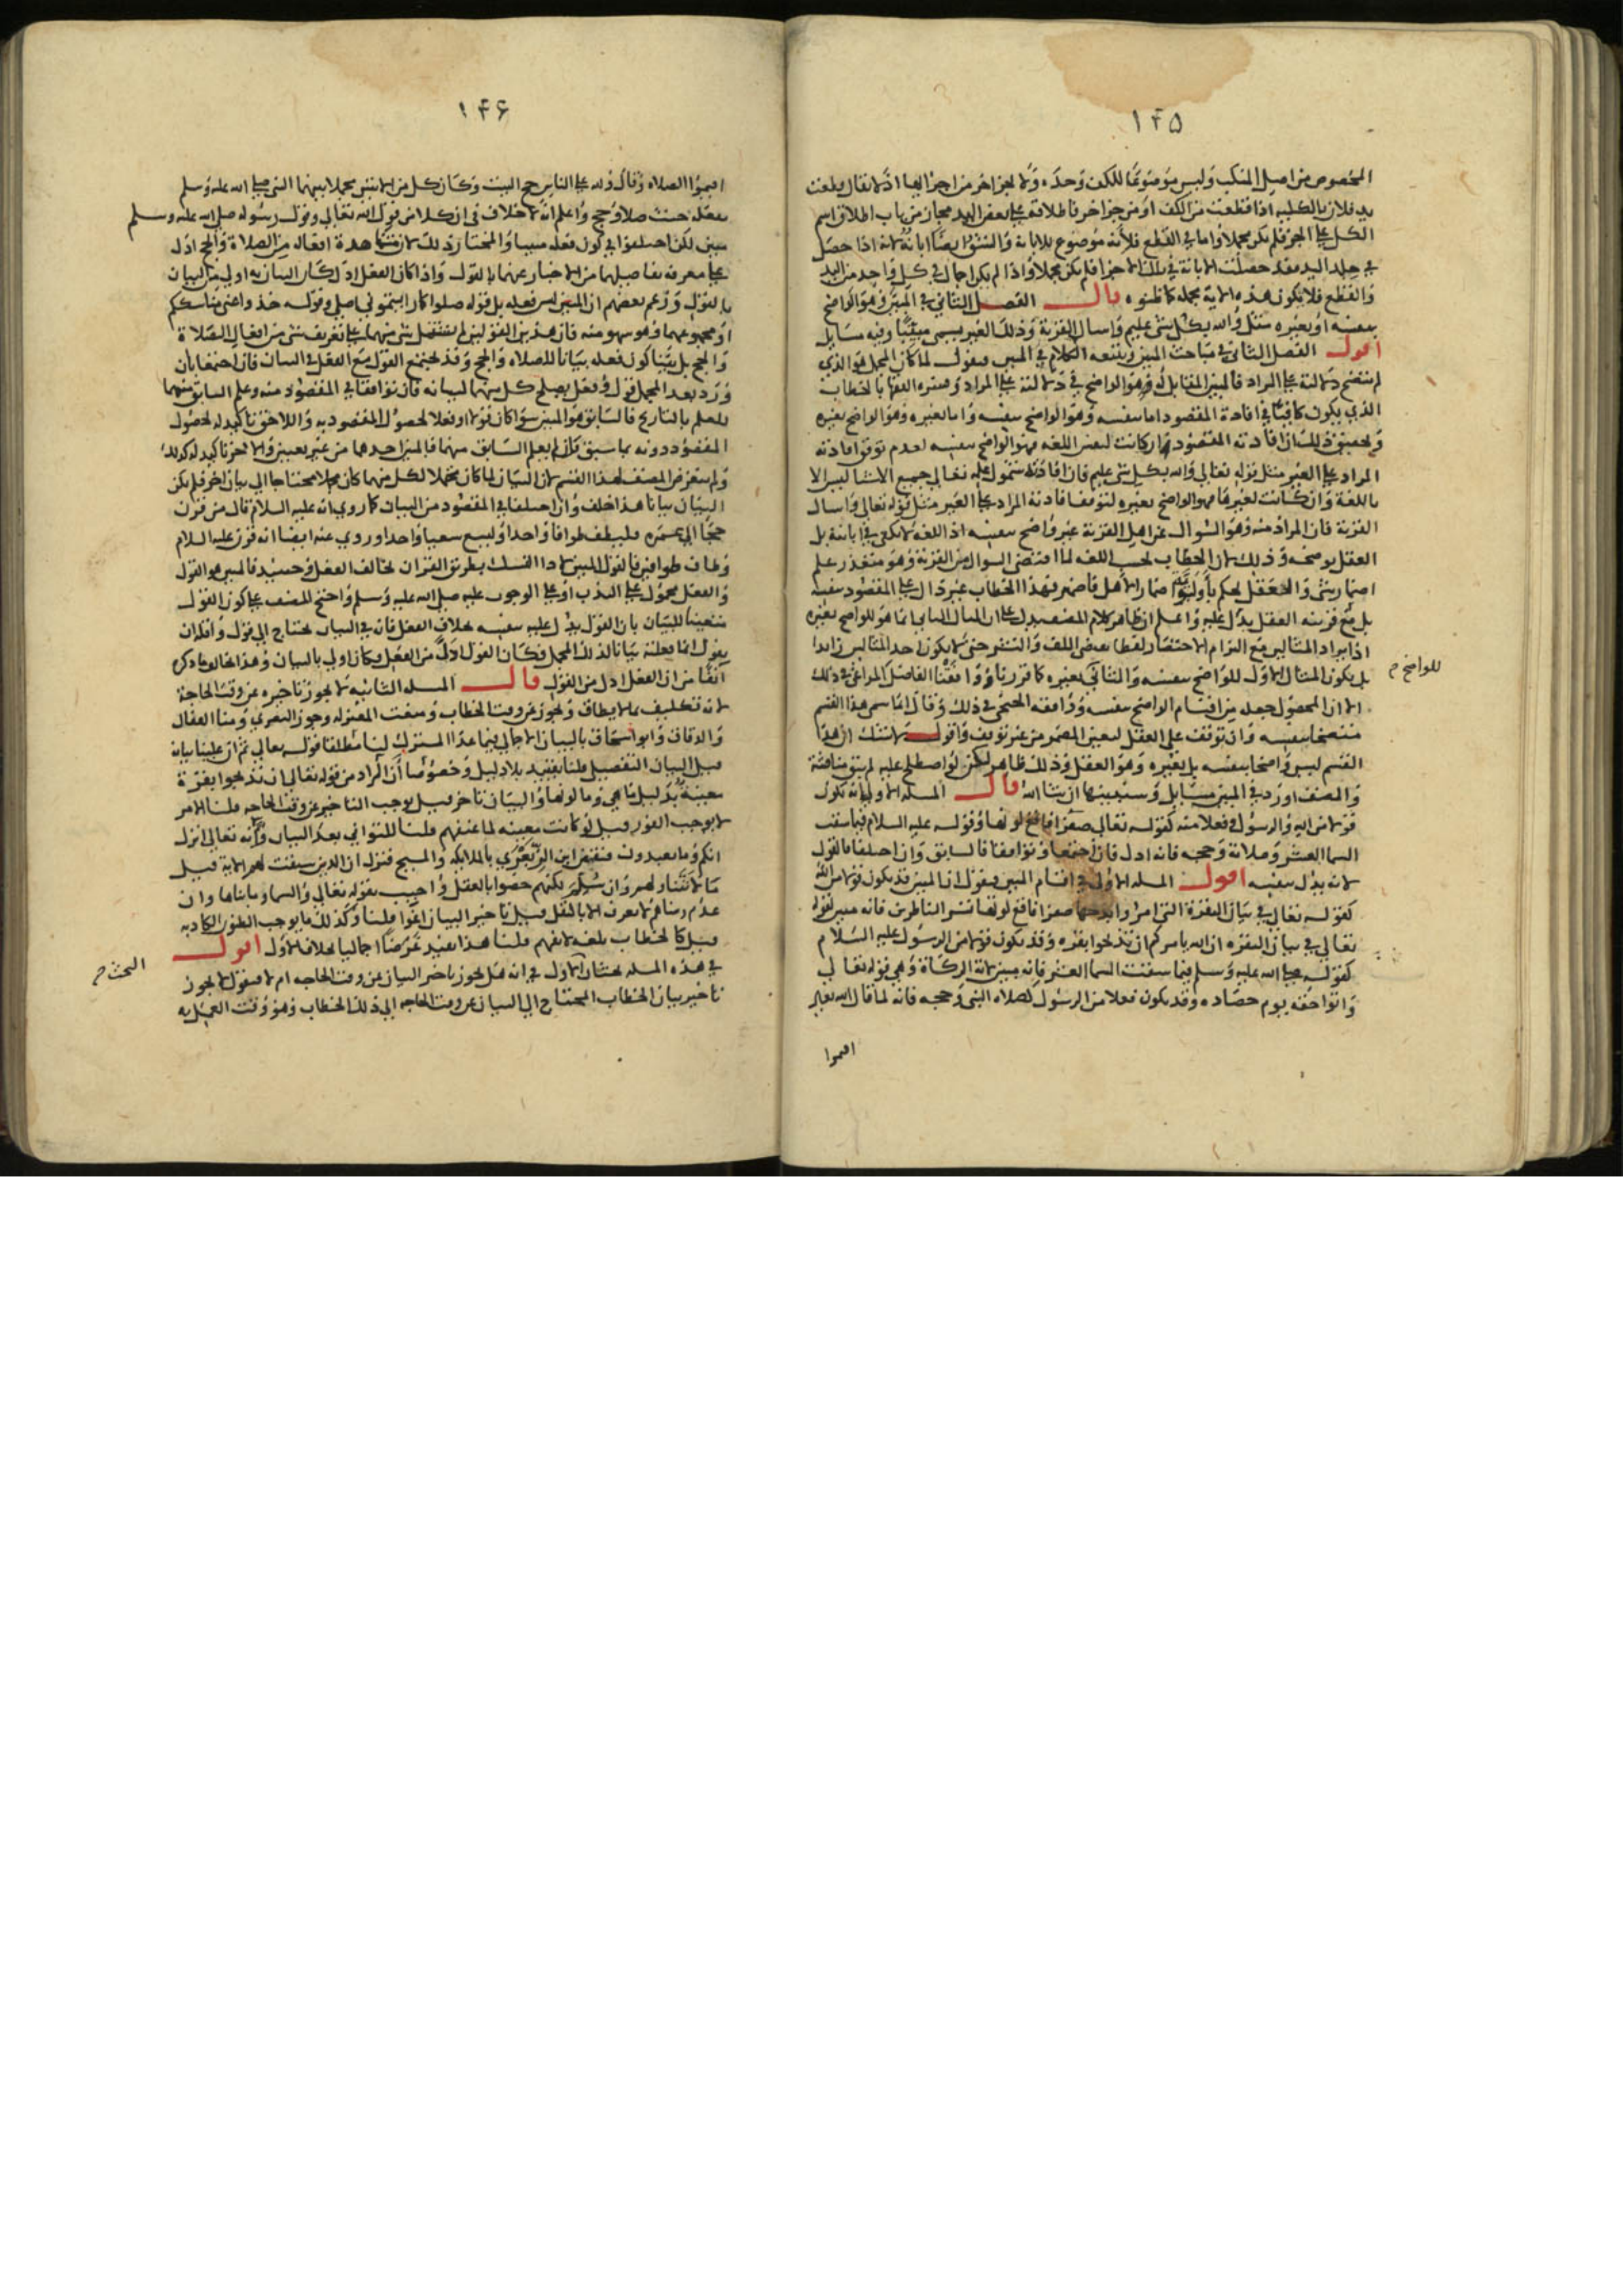 ١٤٥
المخصوص من اصل المنكب وليس موضوعا للكف وحده ولا لجزء اخر من اجزائها اذ لا يقال قطعت
يد فلان بالكلية اذا قطعت من الكف او من جزء اخر فاطلاقه على بعض اليد مجاز من باب اطلاق اسم
الكل على الجزء فلم يكن مجملا واما في القطع فلانه موضوع للابانة والشق ايضا ابانة لانه اذا حصل
في جلد اليد فقد حصلت الابانة في تلك الاجزا فلم يكن مجملا واذا لم يكن اجمال في كل واحد من اليد
والقطع فلا يكون هذه الاية مجملة كما ظنوه قال الفصل الثاني في المبين وهو الواضح
بنفسه او بغيره مثل والله بكل شي عليم واسال القرية وذلك الغير يسمى مبينا وفيه مسايل
اقول الفصل الثاني في مباحث المبين ويتبعه الكلام في المبين فيقول لما كان المجمل هو الذي
لم يتضح دلالته على المراد فالمبين المقابل له وهو الواضح في دلالته على المراد وفسره الفقها بالخطاب
الذي يكون كافيا في افادة المقصود اما بنفسه وهو الواضح بنفسه واما بغيره وهو الواضح بغيره
وتحقيق ذلك ان افادته المقصود ان كانت لنفس اللغة فهو الواضح بنفسه لعدم توقف افادته
المراد على الغير مثل قوله تعالى والله بكل شي عليم فان افادته شمول علمه تعالى جميع الاشيا ليس الا
باللغة وان كانت لغيرها فهو الواضح بغيره لتوقف افادته المراد على الغير مثل قوله تعالى واسال
القرية فان المراد منه وهو السوال عن اهل القرية غير واضح بنفسه اذ اللغة لا تكفي في ابانته بل
العقل يوضحه وذلك لان الخطاب بحسب اللغة لما اقتضى السوال من القرية وهو متعذر علم
اضمار شي والعقل يحكم باولوية اضمار الاهل فاضمر فهذا الخطاب غير دال على المقصود بنفسه
بل مع قرينة العقل يدل عليه واعلم ان ظاهر كلام المصنف يدل على ان المثال الثاني انما هو للواضح بغيره
اذ ايراد المثالين مع التزام الاختصار لفظا بعض اللف والنشر حتى لا يكون احد المثالين زايدا
بل يكون المثال الاول للواضح بنفسه والثاني بغيره كما قررناه ووافقنا الفاضل المراغي في ذلك
للواضح م
الا ان المحصول جعله من اقسام الواضح بنفسه ووافقه الخنجي في ذلك وقال انما سمي هذا القسم
متضحا بنفسه وان توقف على العقل لتعين المضمر من غير توقف واقول لا شك ان هذا
القسم ليس واضحا بنفسه بل بغيره وهو العقل وذلك ظاهر لكن لو اصطلح عليه لم يبق مناقشة
والمصنف اورد في المبين مسايل وستعينها ان شا الله قال المسلة الاولى انه يكون
قولا من الله والرسول وفعلا منه كقوله تعالى صفرا فاقع لونها وقوله عليه السلام فيما سقت
السما العشر وصلاته وحجه فانه ادل فان اجتمعا وتوافقا فالسابق وان اختلفا فالقول
لانه يدل بنفسه اقول المسلة الاولى في اقسام المبين فيقول ان المبين قد يكون قولا من الله
كقوله تعالى في بيان البقرة التي امروا بذبحها صفرا فاقع لونها تسر الناظرين فانه مبين لقوله
تعالى في بيان البقرة ان الله يامركم ان تذبحوا بقرة وقد يكون قولا من الرسول عليه السلام
كقوله صلى الله عليه وسلم فيما سقت السما العشر فانه مبين لاية الزكاة وهي قوله تعالى
واتوا حقه يوم حصاده وقد يكون فعلا من الرسول كصلاة النبي وحجه فانه لما قال الله تعالى
اقيموا
١٤٦
اقيموا الصلاه وقال ولله على الناس حج البيت وكان كل من الايتين مجملا بينهما النبي صلى الله عليه وسلم
بفعله حيث صلى وحج واعلم انه لا خلاف في ان كلا من قول الله تعالى وقول رسوله صلى الله عليه وسلم
مبين لكن اختلفوا في كون فعله مبينا والمختار ذلك لان مشاهدة افعاله من الصلاة والحج ادل
على معرفة تفاصيلها من الاخبار عنها بالقول واذا كان الفعل ادل كان البيان به اولى من البيان
بالقول وزعم بعضهم ان المبين ليس فعله بل قوله صلوا كما رايتموني اصلي وقوله خذوا عني مناسككم
او مجموعهما وهو سهو منه فان هذين القولين لم يشتمل شي منهما على تعريف شي من افعال الصلاة
والحج بل بينا كون فعله بيانا للصلاه والحج وقد يجتمع القول مع الفعل في البيان فان اجتمعا بان
ورد بعد المجمل قول وفعل يصلح كل منهما لبيانه فان توافقا في المقصود منه وعلم السابق منهما
للعلم بالتاريخ فالسابق هو المبين سوا كان قولا او فعلا لحصول المقصود به واللاحق تاكيد له لحصول
المقصود دونه بما سبق وان لم يعلم السابق منهما فالمبين احدهما من غير تعيين والاخر تاكيد له كذلك
ولم يتعرض المصنف لهذا القسم لان البيان لما كان محتملا لكل منهما كان مجملا محتاجا الى بيان اخر فلم يكن
البيان بيانا هذا خلف وان اختلفا في المقصود من البيان كما روي انه عليه السلام قال من قرن
حجا الى عمرة فليطف طوافا واحدا وليسع سعيا واحدا وروي عنه ايضا انه قرن عليه السلام
وطاف طوافين فالقول المبين لاداء النسك بطريق القران يخالف الفعل وحينئذ فالمبين هو القول
والفعل محمول على الندب او على الوجوب عليه صلى الله عليه وسلم واحتج المصنف على كون القول
متعينا للبيان بان القول يدل عليه بنفسه بخلاف الفعل فان في البيان يحتاج الى قول واقله ان
يقول انما فعلته بيانا لذلك المجمل وكان القول ادل من الفعل وكان اولى بالبيان وهذا مخالف لما ذكر
انفا من ان الفعل ادل من القول قال المسلة الثانية لا يجوز تاخيره عن وقت الحاجة
لانه تكليف بما لا يطاق ويجوز عن وقت الخطاب ومنعت المعتزلة وجوز البصري ومنا القفال
والدقاق وابو اسحاق بالبيان الاجمالي فيما عدا المشترك لنا مطلقا قوله تعالى ثم ان علينا بيانه
قيل البيان التفصيلي قلنا تقييد بلا دليل وخصوصا ان المراد من قوله تعالى ان تذبحوا بقرة
معينة بدليل ما هي وما لونها والبيان تاخر قيل يوجب التاخير عن وقت الحاجه قلنا الامر
لا يوجب الفور قيل لو كانت معينه لما عنفهم قلنا للتواني بعد البيان وانه تعالى انزل
انكم وما تعبدون فنقض ابن الزبعرى بالملايكه والمسيح فنزل ان الذين سبقت لهم الاية قيل
ما لا تتناولهم وان سلم لكنهم خصوا بالعقل واجيب بقوله تعالى والسما وما بناها وان
عدم رضاهم لا يعرف الا بالنقل قيل تاخير البيان اغوا قلنا وكذلك ما يوجب الظنون الكاذبه
قيل كالخطاب بلغه لا تفهم قلنا هذا يفيد غرضا اجماليا بخلاف الاول اقول
في هذه المسله بحثان الاول في انه هل يجوز تاخير البيان عن وقت الحاجه ام لا فيقول لا يجوز
البحث م
تاخير بيان الخطاب المحتاج الى البيان عن وقت الحاجه الى ذلك الخطاب وهو وقت العمل به